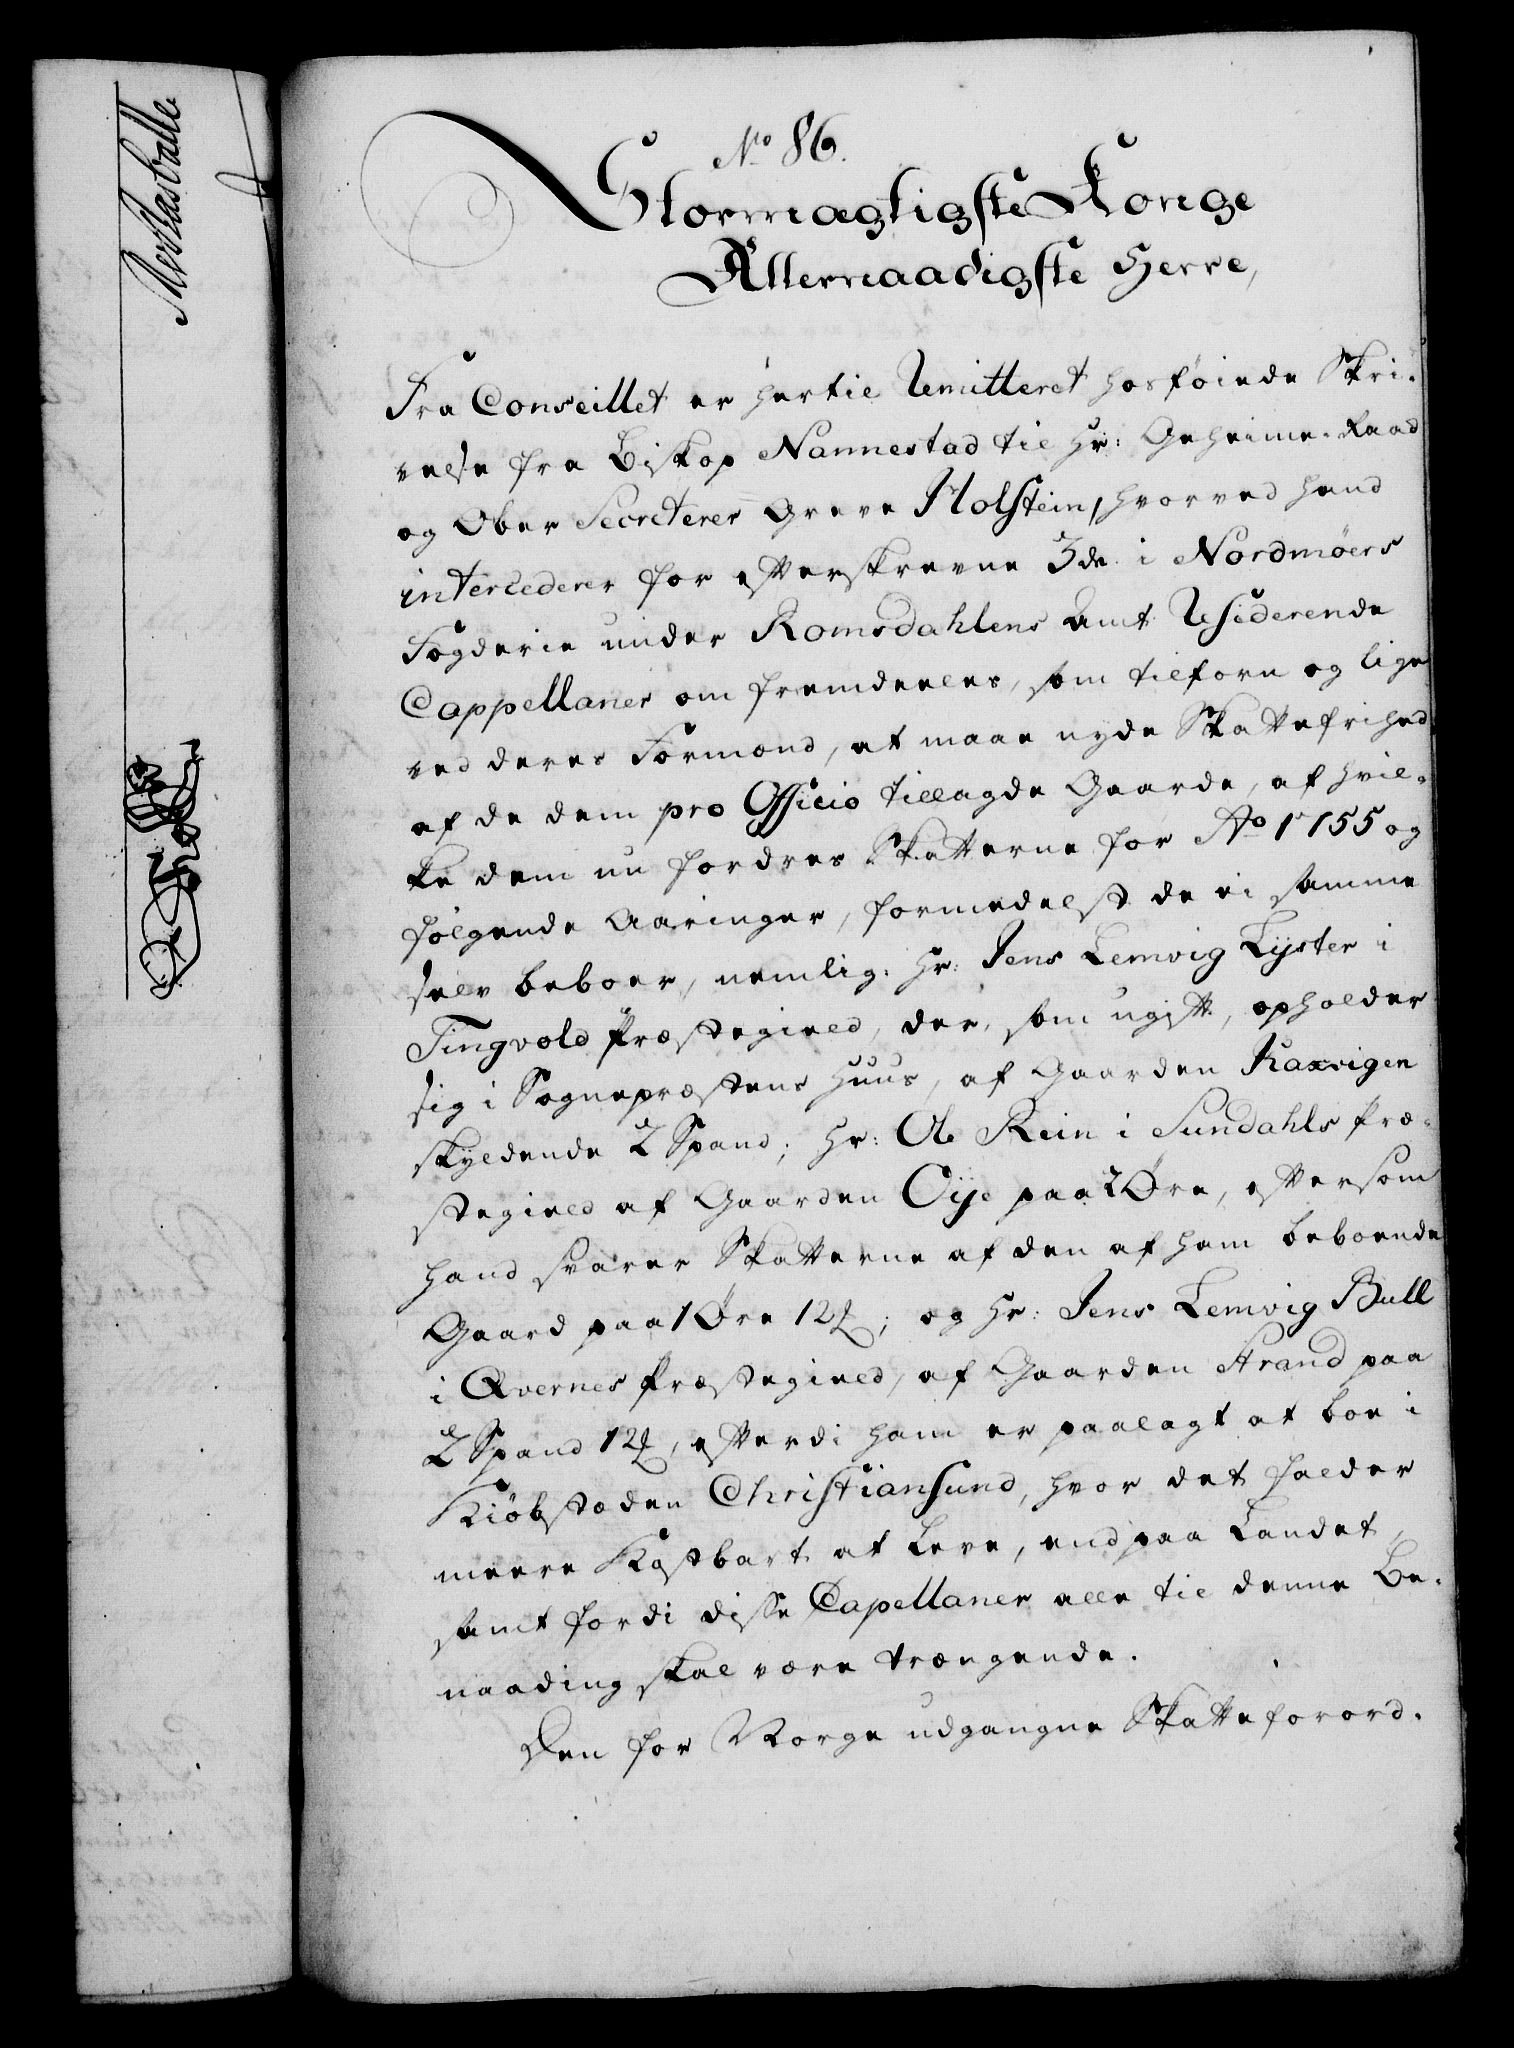 No 86.
Stormægtigste Konge
Allernaadigste Herre,
Fra Conseillet er hertil Remitteret hosføiede Skri-
velse fra Biskop Nannestad til Hr: Geheime-Raad
og Ober Secreterer Greve Holstein, hvorved hand
intercederer for efterskrevne 3de i Nordmøers
Fogderie under Romsdahlens Amt Residerende
Cappellaner om fremdeeles, som tilforn og lige
ved deres Formænd, at maae nyde Skattefrihed
af de dem pro Officio tillagde Gaarde, af hvil-
ke dem nu fordres Skatterne for Ao 1755 og
følgende Aaringer, formedelst de ei samme
selv beboer, nemlig: Hr: Jens Lemvig Lyster i
Tingvold Præstegield, der, som ugift, opholder
sig i Sognepræstens Huus, af Gaarden Kaxvigen
skyldende 2 Spand; Hr: Ole Rein i Sundahls Præ-
stegield af Gaarden Oije paa 2 Øre, eftersom
hand svarer Skatterne af den af ham beboende
Gaard paa 1 Øre 12; og Hr: Jens Lemvig Bull
i Qvernes Præstegield, af Gaarden Strand paa
2 Spand 12, efterdi ham er paalagt at boe i
Kiøbstæden Christiansund, hvor det falder
meere Kostbart at Leve, end paa Landet,
samt fordi disse Capellaner alle til denne Be-
naading skal være trængende.
Den for Norge udgangne Skatteforord-